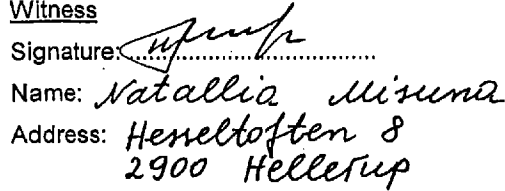 Witness
Signature:..............................
Name: Natallia Misuna
Address: Hesseltoften 8
2900 Hellerup